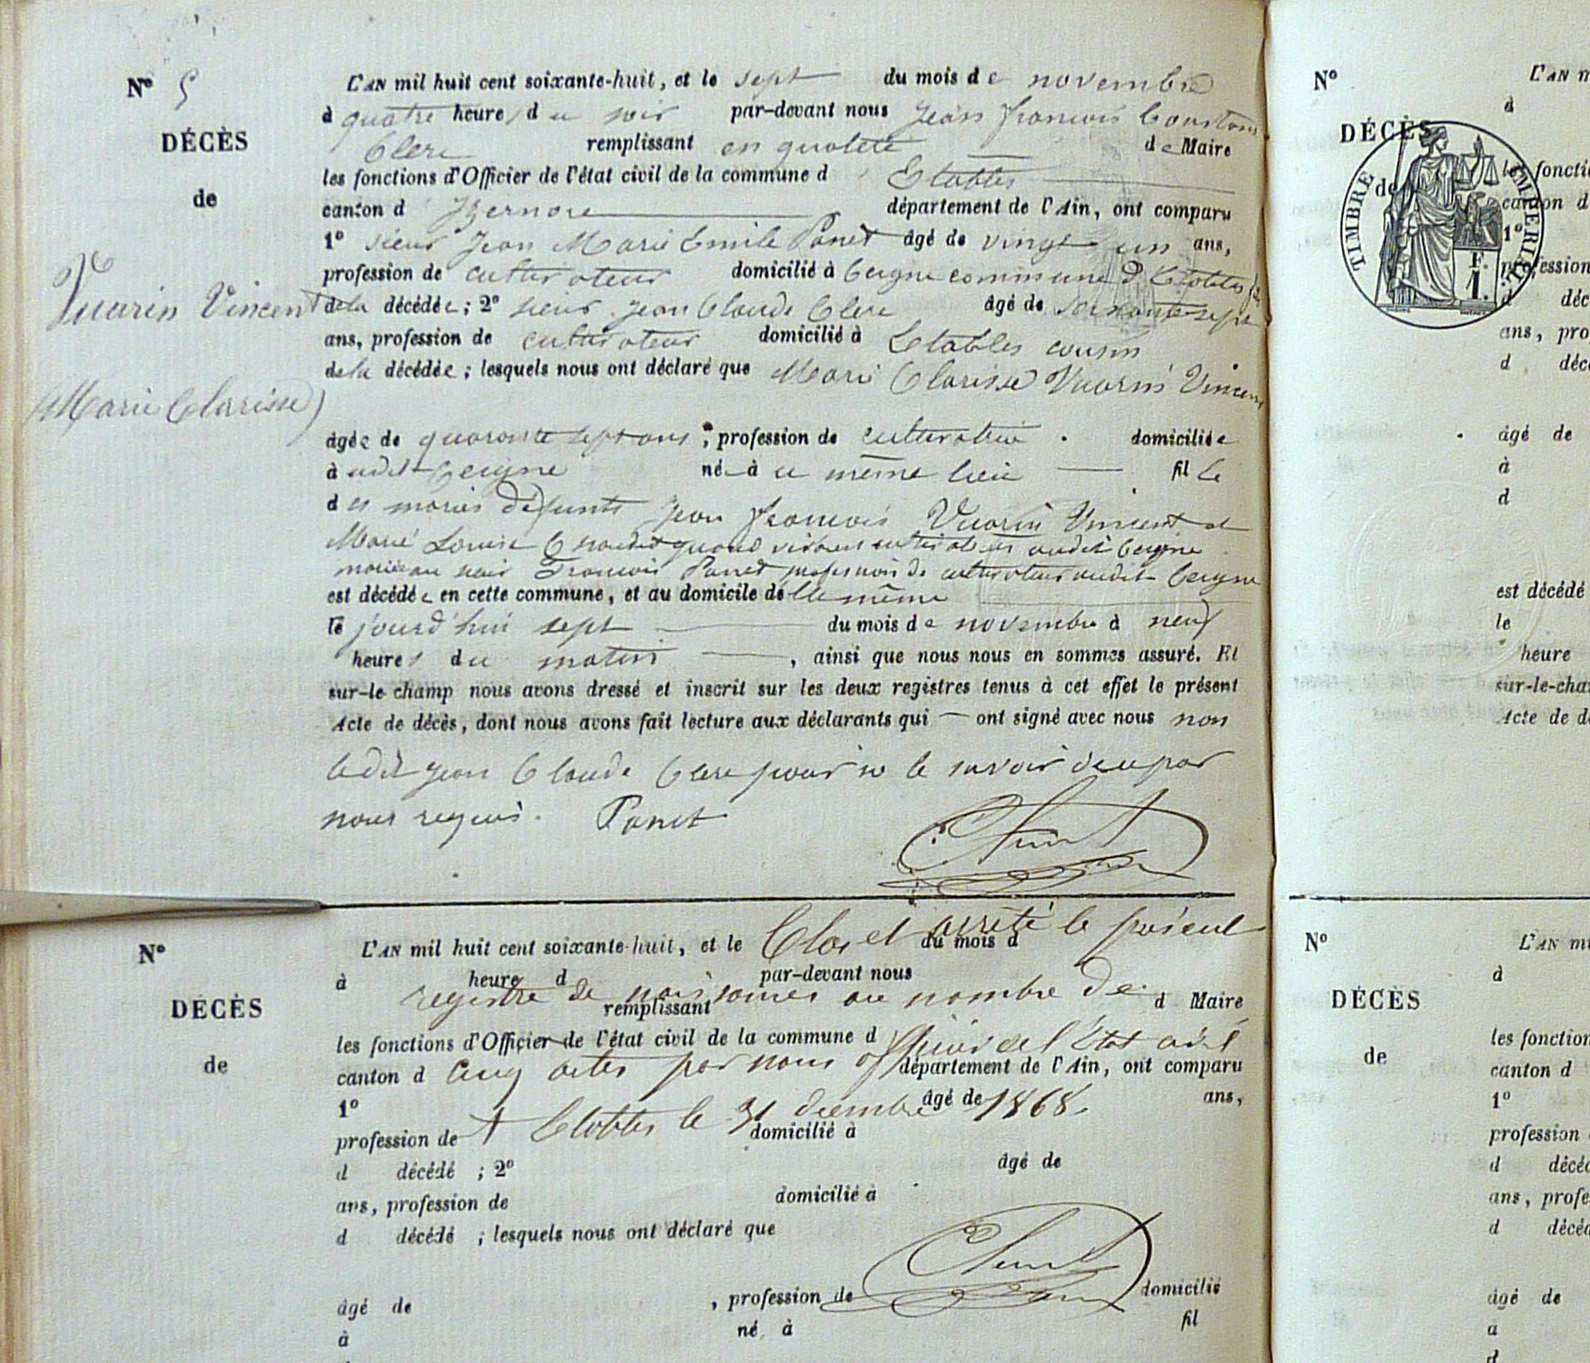 N° 5
DÉCÈS
de
Vuarin Vincent
(Marie Clarisse)
L'AN mil huit cent soixante-huit, et le sept du mois de novembre
à quatre heures du soir par-devant nous Jean François Constant
Clerc remplissant en qualité de Maire
les fonctions d'Officier de l'état civil de la commune d Etables
canton d Izernore département de l'Ain, ont comparu
1° sieur Jean Marie Emile Panet âgé de vingt un ans,
profession de cultivateur domicilié à Ceigne commune d'Etables
de la décédée ; 2° sieur Jean Claude Clerc âgé de soixante sept
ans, profession de cultivateur domicilié à Etables cousin
de la décédée ; lesquels nous ont déclaré que Marie Clarisse Vuarin Vincent
âgée de quarante sept ans, profession de cultivatrice domiciliée
à udit Ceigne né à ce même lieu fille
des mariés défunts Jean François Vuarin Vincent et
Marie Louise quand vivaient cultivateurs audit Ceigne
mariée au sieur François Panet profession de cultivateur audit Ceigne
est décédée en cette commune, et au domicile d'elle même
le jourd'hui sept du mois de novembre à neuf
heures du matin , ainsi que nous nous en sommes assuré. Et
sur-le champ nous avons dressé et inscrit sur les deux registres tenus à cet effet le présent
Acte de décès, dont nous avons fait lecture aux déclarants qui ont signé avec nous non
ledit Jean Claude Clerc pour ne le savoir de ce par
nous requis. Panet
N°
DÉCÈS
de
L'AN mil huit cent soixante-huit, et le du mois d
Clos et arrêté le présent
à heure d par-devant nous
registre de naissances au nombre de
remplissant d Maire
les fonctions d'Officier de l'état civil de la commune d
cinq actes par nous officier de l'État civil
canton d département de l'Ain, ont comparu
1° âgé de ans,
A Etables le 31 décembre 1868.
profession de domicilié à
d décédé ; 2° âgé de
ans, profession de domicilié à
d décédé ; lesquels nous ont déclaré que
âgé de , profession de domicilié
à né à fil
N°
L'AN m
à
DÉCÈS
de
TIMBRE IMPÉRIAL
F.
1.
les fonctio
canton d
1°
profession
d déc
ans, pro
d déc
âgé de
à
d
est décédé
le
heure
sur-le-cha
Acte de dé
N°
L'AN mi
à
DÉCÈS
de
les fonction
canton d
1°
profession
d décéd
ans, profe
d décéd
âgé de
à
d